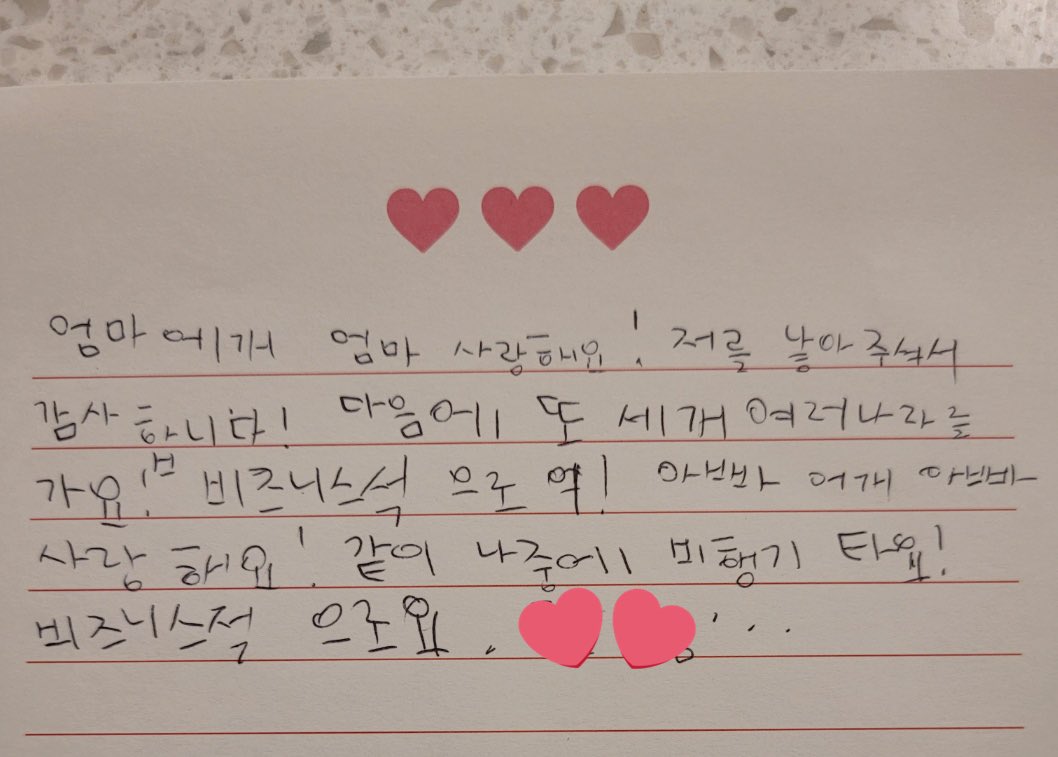 엄마에게 엄마 사랑해요! 저를 낳아주셔서
감사합니다! 다음에 또 세개 여러나라를
가요! 비즈니스석 으로 여! 아빠 어게 아빠
사랑해요! 같이 나중에 비행기 타요!
비즈니스적 으로요. ...